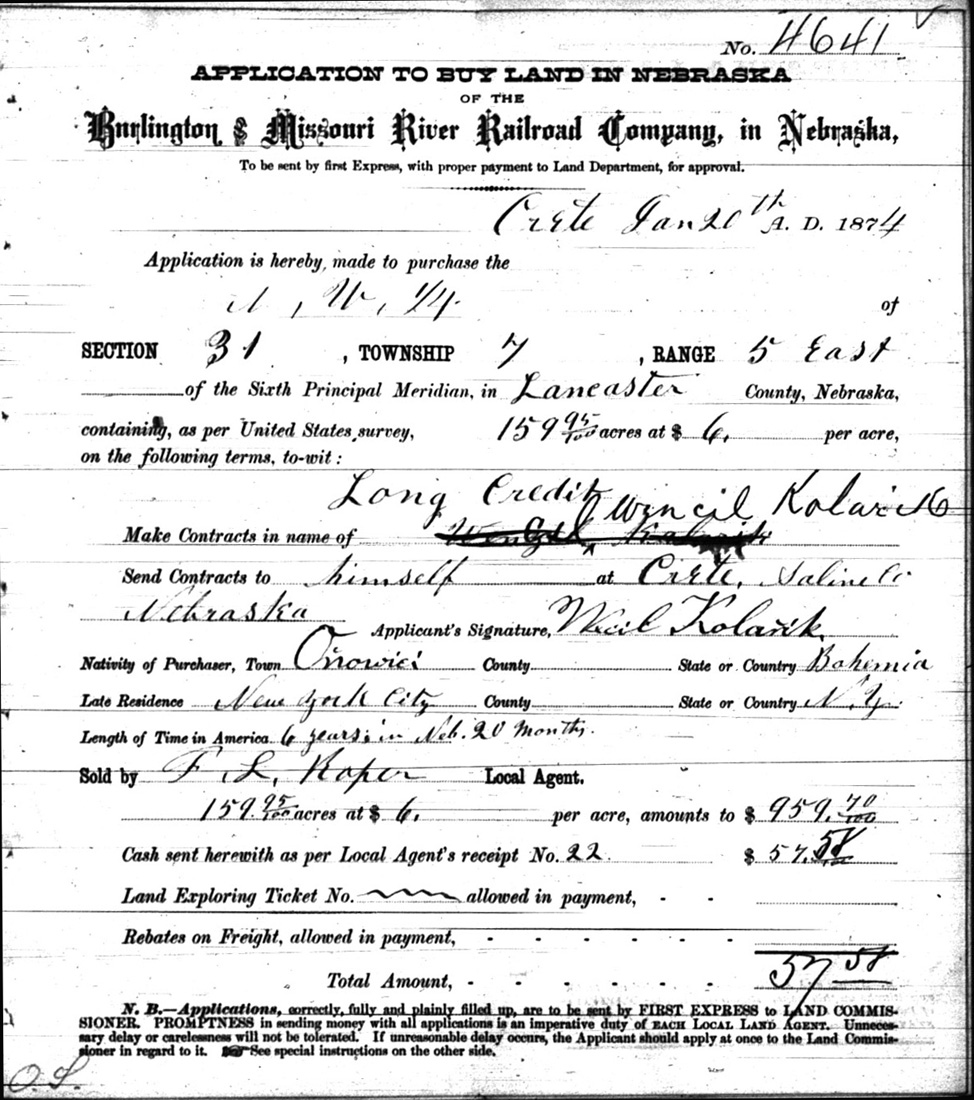 No. 4641
APPLICATION TO BUY LAND IN NEBRASKA
OF THE
Burlington & Missouri River Railroad Company, in Nebraska,
To be sent by first Express, with proper payment to Land Department, for approval.
Crete Jan 20th A. D. 1874
Application is hereby made to purchase the
N, W, 1/4 of
SECTION 31, TOWNSHIP 7, RANGE 5 East
of the Sixth Principal Meridian, in Lancaster County, Nebraska,
containing, as per United States survey, 159 95/100 acres at $ 6, per acre,
on the following terms, to-wit:
Long Credit
Wencil Kolarik
Make Contracts in name of
Send Contracts to himself at Crete, Saline Co
Nebraska
Applicant's Signature, Kolařik.
Nativity of Purchaser, Town County State or Country Bohemia
Late Residence New York City County State or Country N. Y.
Length of Time in America 6 years; in Neb. 20 Months.
Sold by F. L. Roper Local Agent.
159. 95/100 acres at $ 6. per acre, amounts to $ 959. 70/100
Cash sent herewith as per Local Agent's receipt No. 22. $ 57. 58
Land Exploring Ticket No. allowed in payment, - -
Rebates on Freight, allowed in payment, - - - - - -
Total Amount, - - - - - - - 57 58
N. B.—Applications, correctly, fully and plainly filled up, are to be sent by FIRST EXPRESS to LAND COMMIS-
SIONER. PROMPTNESS in sending money with all applications is an imperative duty of EACH LOCAL LAND AGENT. Unneces-
sary delay or carelessness will not be tolerated. If unreasonable delay occurs, the Applicant should apply at once to the Land Commis-
sioner in regard to it. ☞ See special instructions on the other side.
O. S.